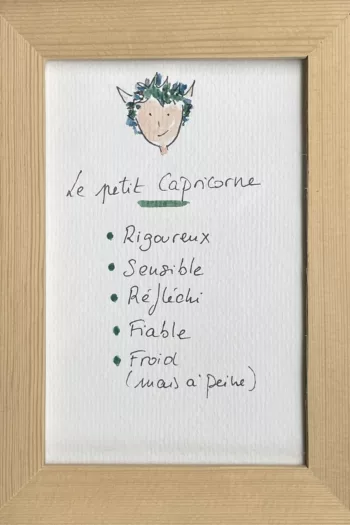 Le petit Capricorne
• Rigoureux
• Sensible
• Réfléchi
• Fiable
• Froid
(mais à peine)